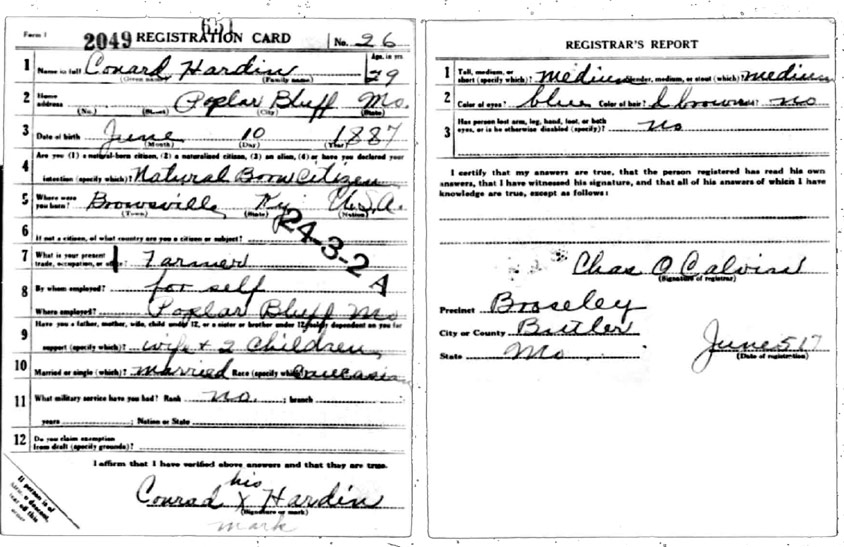 651
Form 1
2049 REGISTRATION CARD No. 26
1 Name in full Conard Hardin Age, in yrs 29
(Given name) (Family name)
2 Home address Poplar Bluff Mo.
(No.) (Street) (City) (State)
3 Date of birth June 10 1887
(Month) (Day) (Year)
Are you (1) a natural-born citizen, (2) a naturalized citizen, (3) an alien, (4) or have you declared your
4 intention (specify which)? Natural Born Citizen
5 Where were you born? Brownsville Ky U.S.A.
(Town) (State) (Nation)
24-3-2 A
6 If not a citizen, of what country are you a citizen or subject?
7 What is your present trade, occupation, or office? Farmer
8 By whom employed? for self
Where employed? Poplar Bluff Mo
9 Have you a father, mother, wife, child under 12, or a sister or brother under 12, solely dependent on you for
support (specify which)? Wife + 2 Children
10 Married or single (which)? Married Race (specify which)? Caucasian
11 What military service have you had? Rank no ; branch
years ; Nation or State
12 Do you claim exemption
from draft (specify grounds)?
I affirm that I have verified above answers and that they are true.
his
Conrad X Hardin
(Signature or mark)
mark
If person is of
REGISTRAR'S REPORT
1 Tall, medium, or short (specify which)? Medium Slender, medium, or stout (which)? medium
2 Color of eyes? blue Color of hair? brown no
3 Has person lost arm, leg, hand, foot, or both
eyes, or is he otherwise disabled (specify)? No
I certify that my answers are true, that the person registered has read his own
answers, that I have witnessed his signature, and that all of his answers of which I have
knowledge are true, except as follows:
Chas O Calvin
(Signature of registrar)
Precinct
City or County Butler
State Mo
June 5 17
(Date of registration)